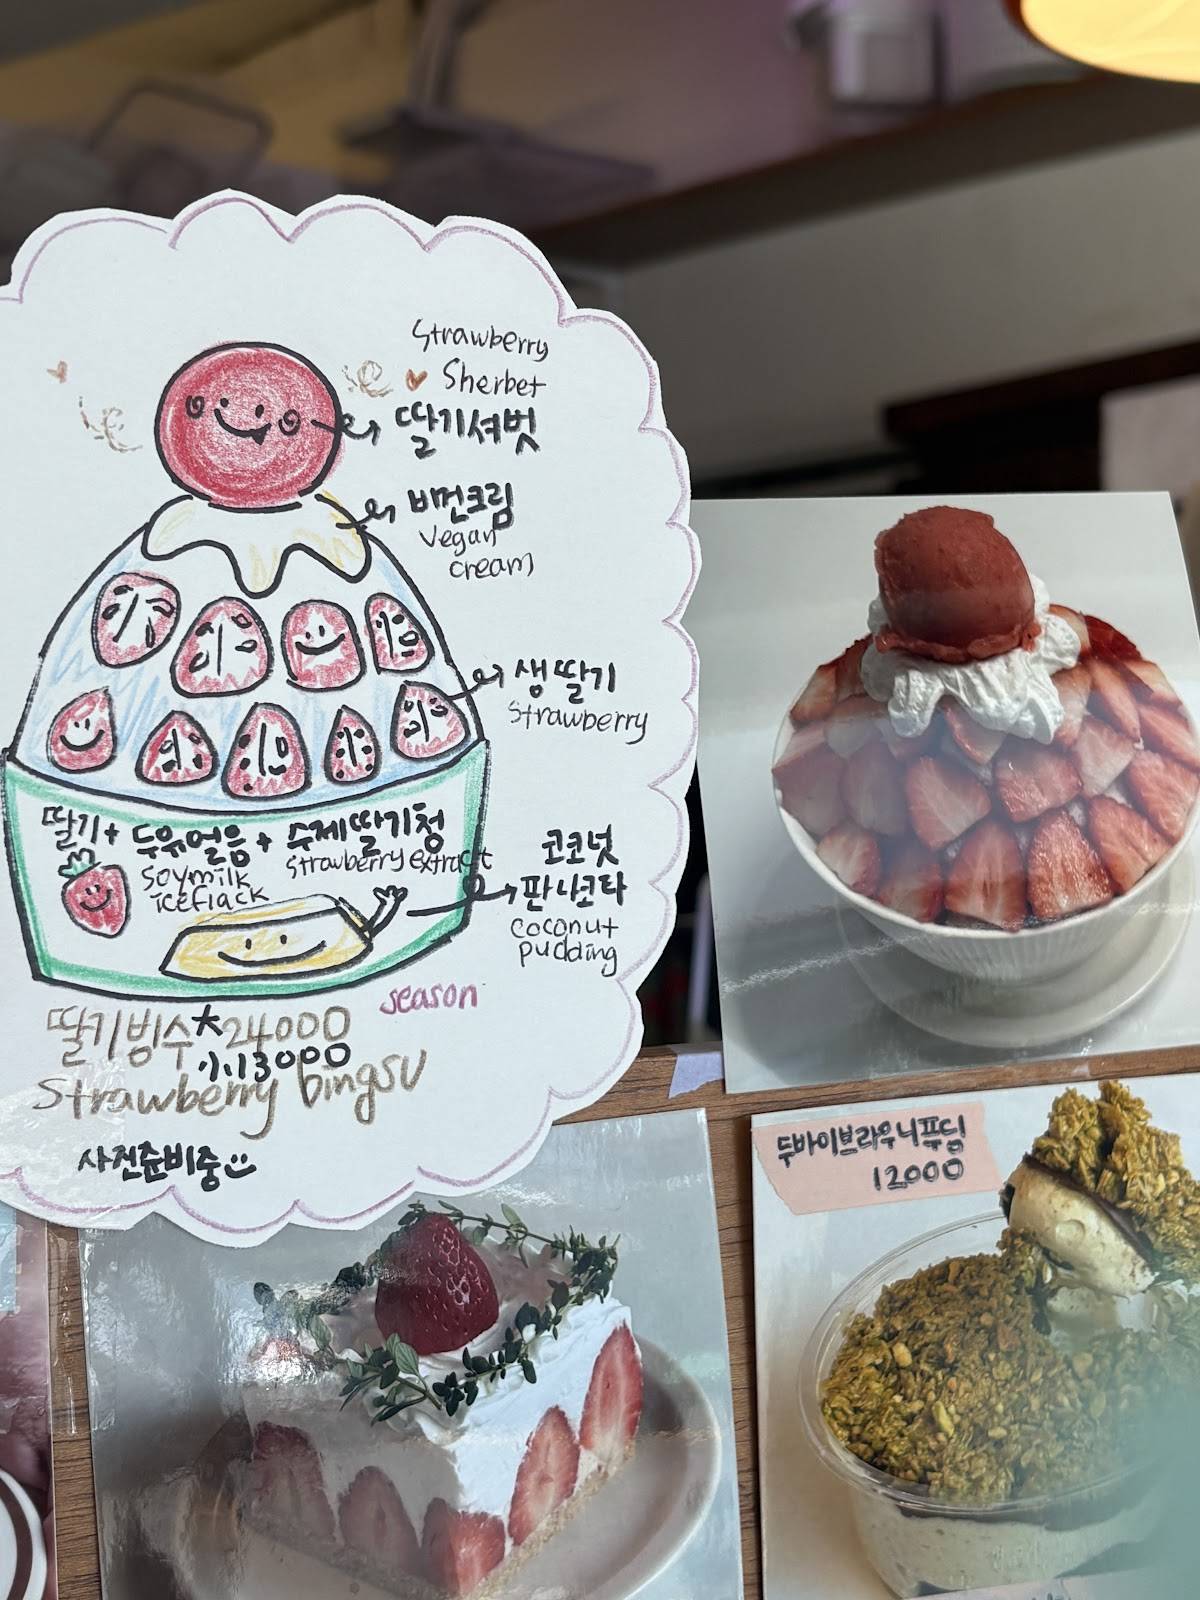 Strawberry
Sherbet
딸기셔벗
비건크림
vegan
cream
생딸기
Strawberry
딸기+ 두유얼음+ 수제딸기청
soymilk
iceflack
strawberry extract
코코넛
판나코타
coconut
pudding
season
딸기빙수 24000
小13000
Strawberry bingsu
사전준비중
두바이브라우니푸딩
12000